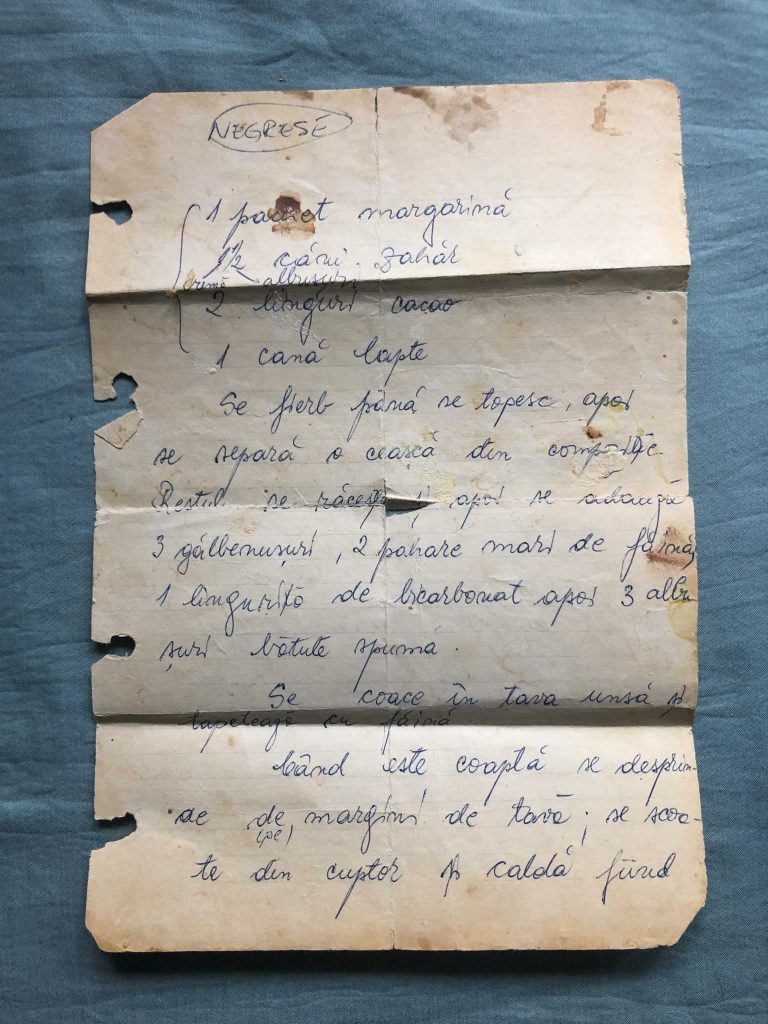 NEGRESĂ
1 pachet margarină
1 1/2 căni zahăr
cremă albușuri
2 linguri cacao
1 cană lapte
Se fierb până se topesc, apoi
se separă o cească din
Restul se și apoi se adaugă
3 gălbenușuri, 2 pahare mari de făină,
1 linguriță de bicarbonat apoi 3 albu
șuri bătute spumă.
Se coace în tava unsă și
tapetează cu făină.
Când este coaptă se desprin-
de de margini de tavă; se scoa-
(pe)
te din cuptor și caldă fiind